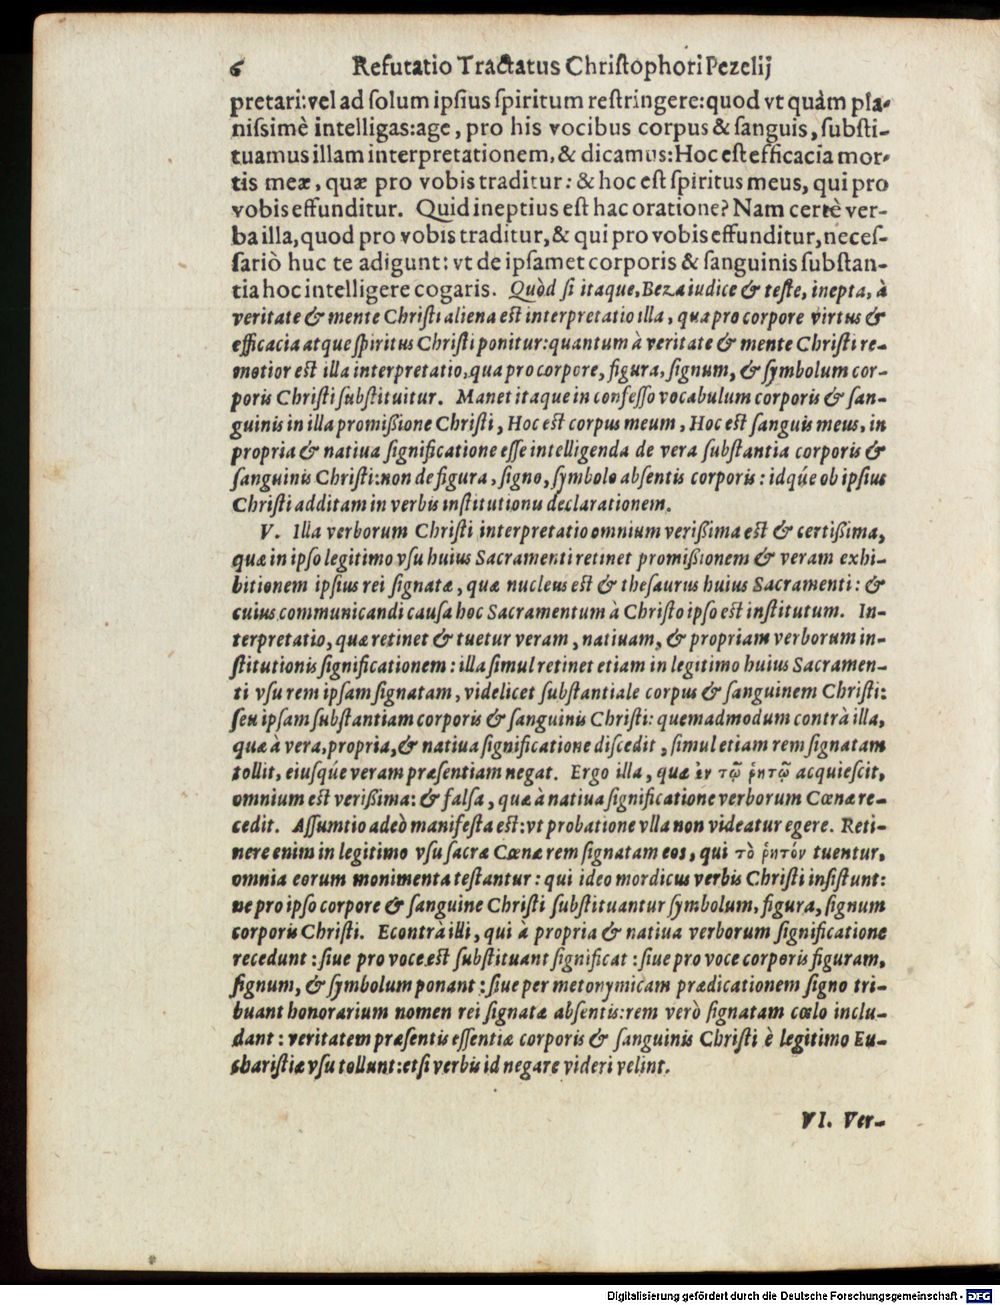 6 Refutatio Tractatus Christophori Pezelij
pretari: vel ad ſolum ipſius ſpiritum reſtringere: quod vt quàm pla-
niſsimè intelligas: age, pro his vocibus corpus & ſanguis, ſubſti-
tuamus illam interpretationem, & dicamus: Hoc eſt efficacia mor-
tis meæ, quæ pro vobis traditur: & hoc eſt ſpiritus meus, qui pro
vobis effunditur. Quid ineptius eſt hac oratione? Nam certè ver-
ba illa, quod pro vobis traditur, & qui pro vobis effunditur, neceſ-
ſariò huc te adigunt: vt de ipſamet corporis & ſanguinis ſubſtan-
tia hoc intelligere cogaris. Quòd ſi itaque, Beza iudice & teſte, inepta, à
veritate & mente Chriſti aliena eſt interpretatio illa, qua pro corpore virtus &
efficacia atque ſpiritus Chriſti ponitur: quantum à veritate & mente Chriſti re-
motior eſt illa interpretatio, qua pro corpore, figura, ſignum, & ſymbolum cor-
poris Chriſti ſubſtituitur. Manet itaque in confeſſo vocabulum corporis & ſan-
guinis in illa promißione Chriſti, Hoc eſt corpus meum, Hoc eſt ſanguis meus, in
propria & natiua ſignificatione eſſe intelligenda de vera ſubſtantia corporis &
ſanguinis Chriſti: non de figura, ſigno, ſymbolo abſentis corporis: idq́ue ob ipſius
Chriſti additam in verbis inſtitutionis declarationem.
V. Illa verborum Chriſti interpretatio omnium verißima eſt & certißima,
quæ in ipſo legitimo vſu huius Sacramenti retinet promißionem & veram exhi-
bitionem ipſius rei ſignatæ, quæ nucleus eſt & theſaurus huius Sacramenti: &
cuius communicandi cauſa hoc Sacramentum à Chriſto ipſo eſt inſtitutum. In-
terpretatio, quæ retinet & tuetur veram, natiuam, & propriam verborum in-
ſtitutionis ſignificationem: illa ſimul retinet etiam in legitimo huius Sacramen-
ti vſu rem ipſam ſignatam, videlicet ſubſtantiale corpus & ſanguinem Chriſti:
ſeu ipſam ſubſtantiam corporis & ſanguinis Chriſti: quemadmodum contrà illa,
quæ à vera, propria, & natiua ſignificatione diſcedit, ſimul etiam rem ſignatam
tollit, eiuſq́ue veram præſentiam negat. Ergo illa, quæ ἐν τῷ ῥητῷ acquieſcit,
omnium eſt verißima: & falſa, quæ à natiua ſignificatione verborum Cœnæ re-
cedit. Aſſumtio adeò manifeſta eſt: vt probatione vlla non videatur egere. Reti-
nere enim in legitimo vſu ſacræ Cœnæ rem ſignatam eos, qui τὸ ῥητόν tuentur,
omnia eorum monimenta teſtantur: qui ideo mordicus verbis Chriſti inſiſtunt:
ne pro ipſo corpore & ſanguine Chriſti ſubſtituantur ſymbolum, figura, ſignum
corporis Chriſti. Econtrà illi, qui à propria & natiua verborum ſignificatione
recedunt: ſiue pro voce eſt ſubſtituant ſignificat: ſiue pro voce corporis figuram,
ſignum, & ſymbolum ponant: ſiue per metonymicam prædicationem ſigno tri-
buant honorarium nomen rei ſignatæ abſentis: rem verò ſignatam cœlo inclu-
dant: veritatem præſentis eſſentiæ corporis & ſanguinis Chriſti è legitimo Eu-
chariſtiæ vſu tollunt: etſi verbis id negare videri velint.
VI. Ver-
Digitalisierung gefördert durch die Deutsche Forschungsgemeinschaft - DFG